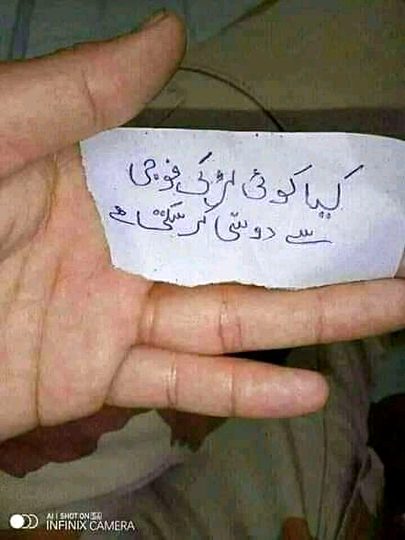 کیا کوئی لڑکی فوجی
سے دوستی کر سکتی ہے
AI | SHOT ON 5G
INFINIX CAMERA